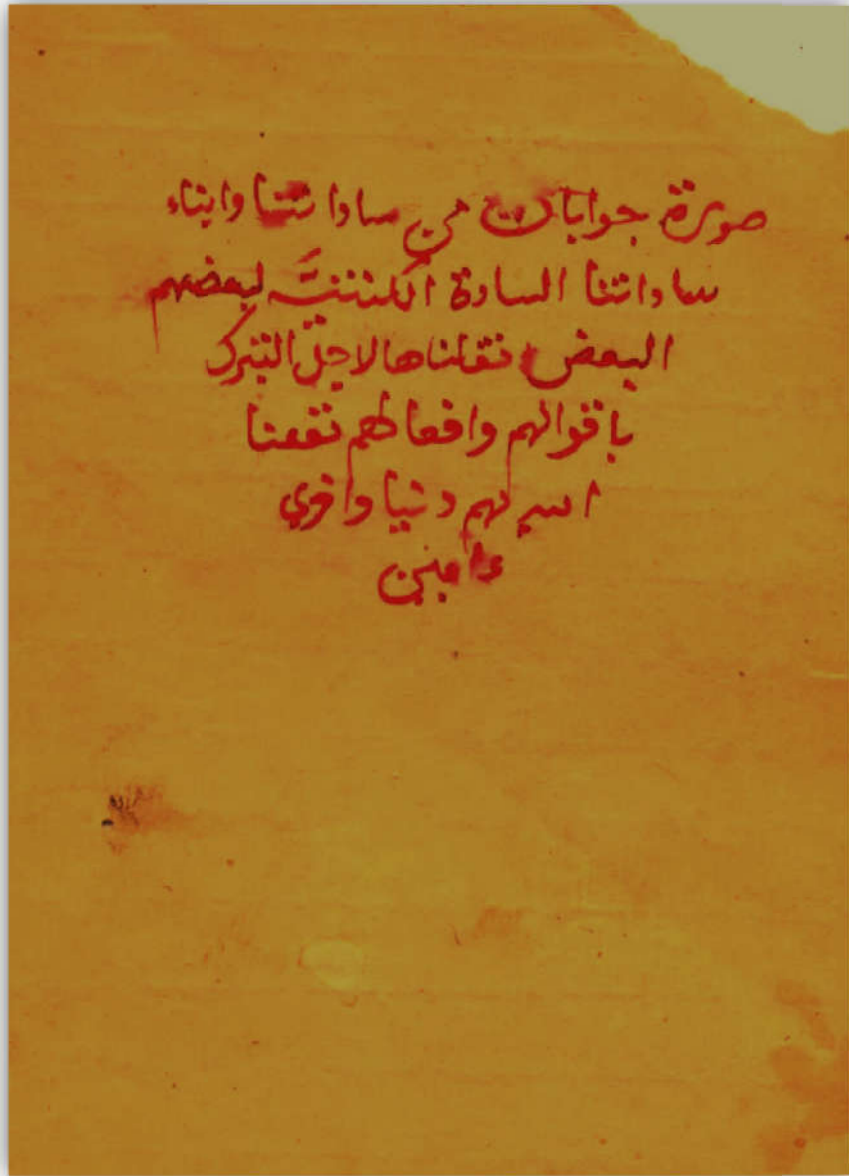 صورة جوابات من ساداتنا وابناء
ساداتنا السادة الكنتيَّه لبعضهم
البعض نقلناها لاجل التبرك
باقوالهم وافعالهم نفعنا
الله بهم دنيا واخرى
ءامين